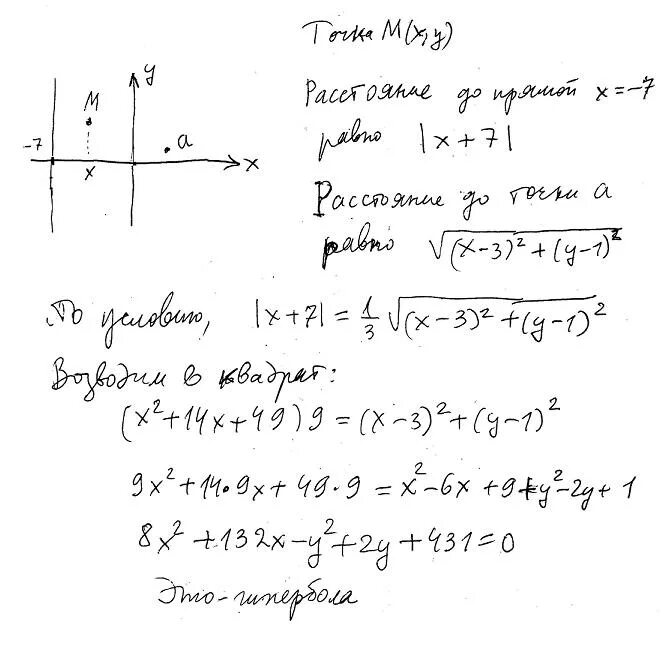 Точка M(x,y)
y
M
a
-7
x
x
Расстояние до прямой x=-7
равно |x+7|
Расстояние до точки a
равно √(x-3)²+(y-1)²
По условию, |x+7| = 1/3 √(x-3)²+(y-1)²
Возводим в квадрат:
(x²+14x+49)9=(x-3)²+(y-1)²
9x²+14·9x+49·9=x²-6x+9+y²-2y+1
8x²+132x-y²+2y+431=0
Это-гипербола